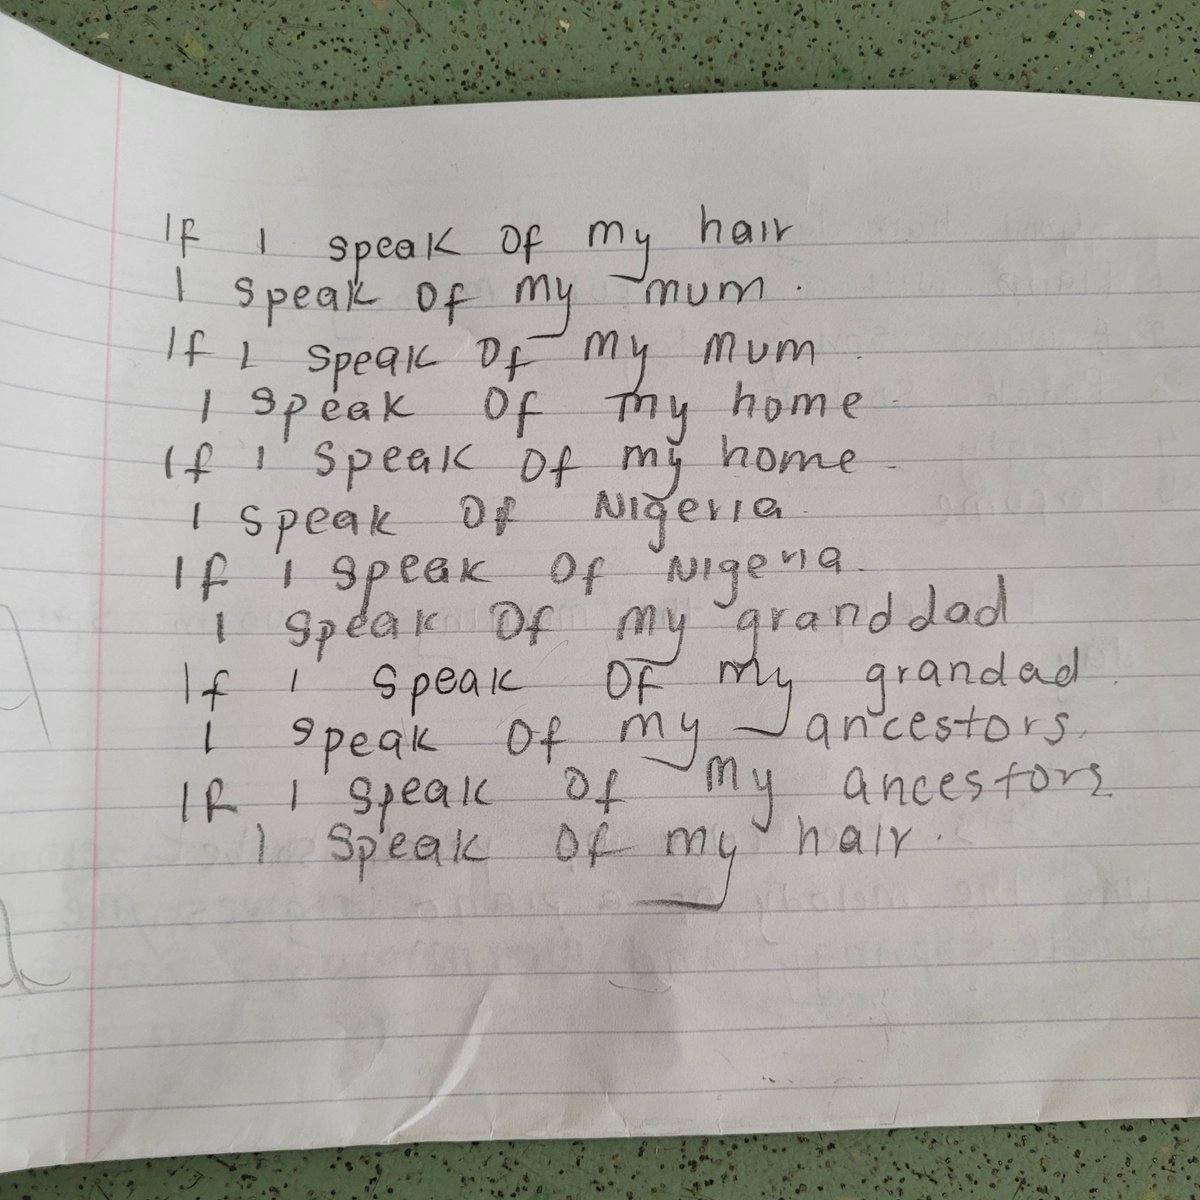 If I speak of my hair
I speak of my mum.
If I speak of my mum.
I speak of my home.
If I speak of my home.
I speak of Nigeria.
If I speak of Nigeria.
I speak of my granddad
If I speak of my grandad.
I speak of my ancestors.
If I speak of my ancestors
I speak of my hair.